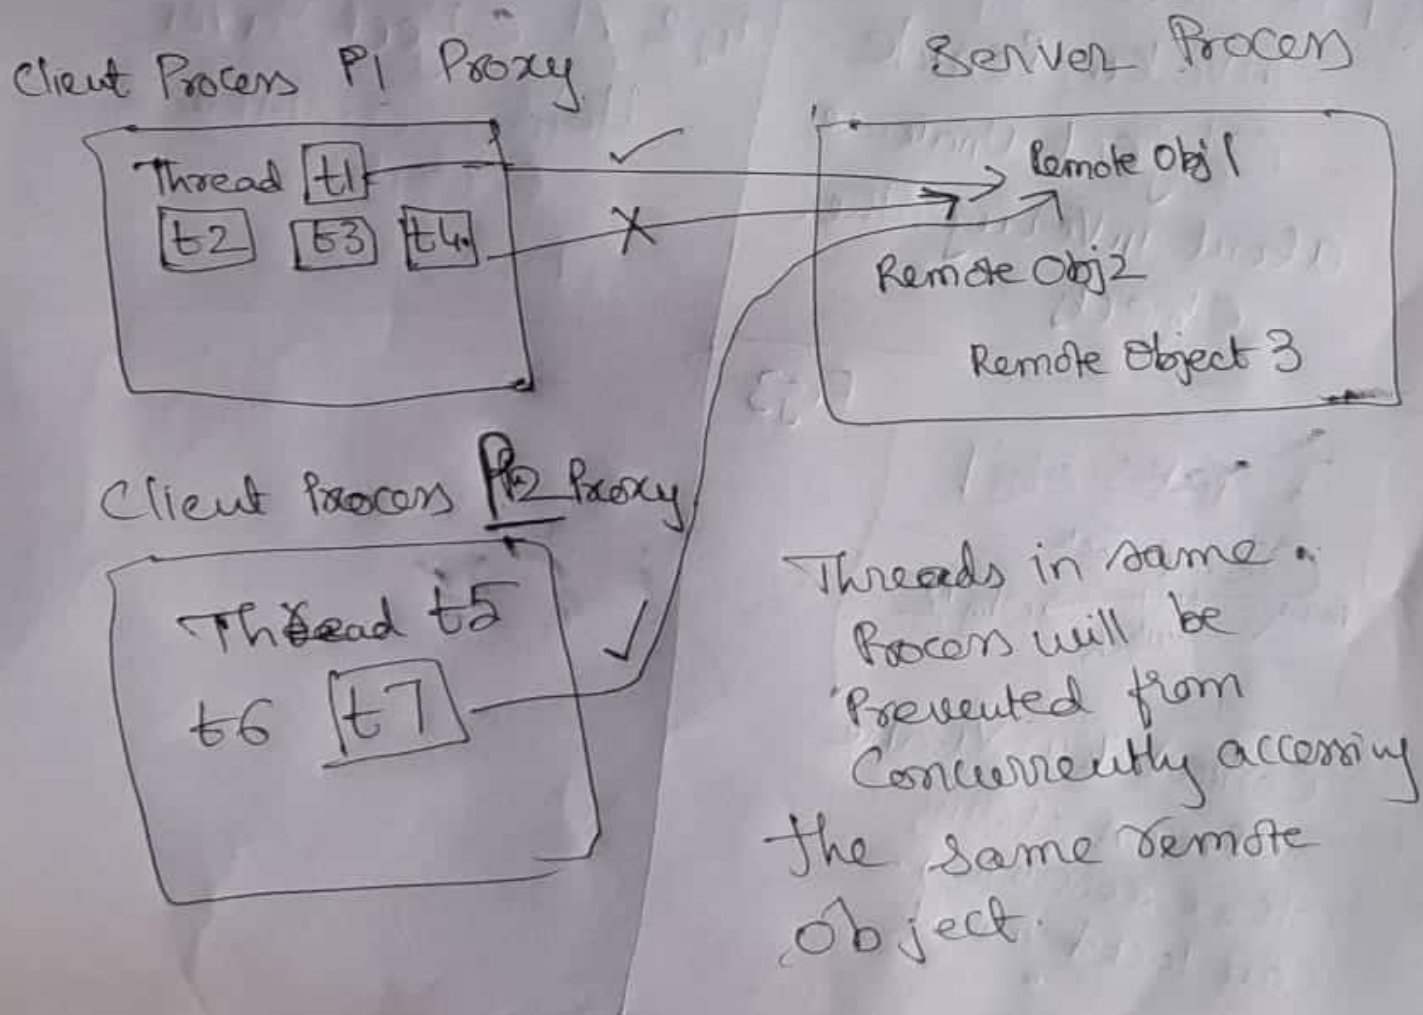 Client Process P1 Proxy
Thread t1
t2 t3 t4
Server Process
Remote Obj 1
Remote Obj2
Remote Object 3
Client Process P2 Proxy
Thread t5
t6 t7
Threads in same
Process will be
Prevented from
Concurrently accessing
the same remote
object.